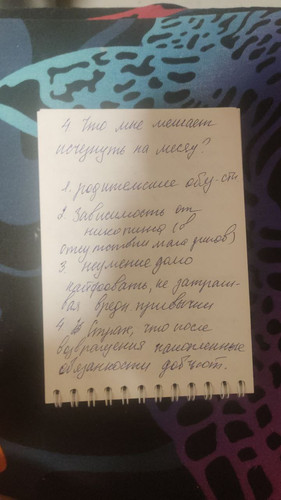 4 Что мне мешает
исчезнуть на месяц?
1. родительские обяз-сти
2. Зависимость от
никотина (в
отсутствии магазинов)
3. неумение долго
кайфовать, не затраги-
вая вредн. привычки
4 Страх, что после
возвращения накопленные
обязанности добьют.